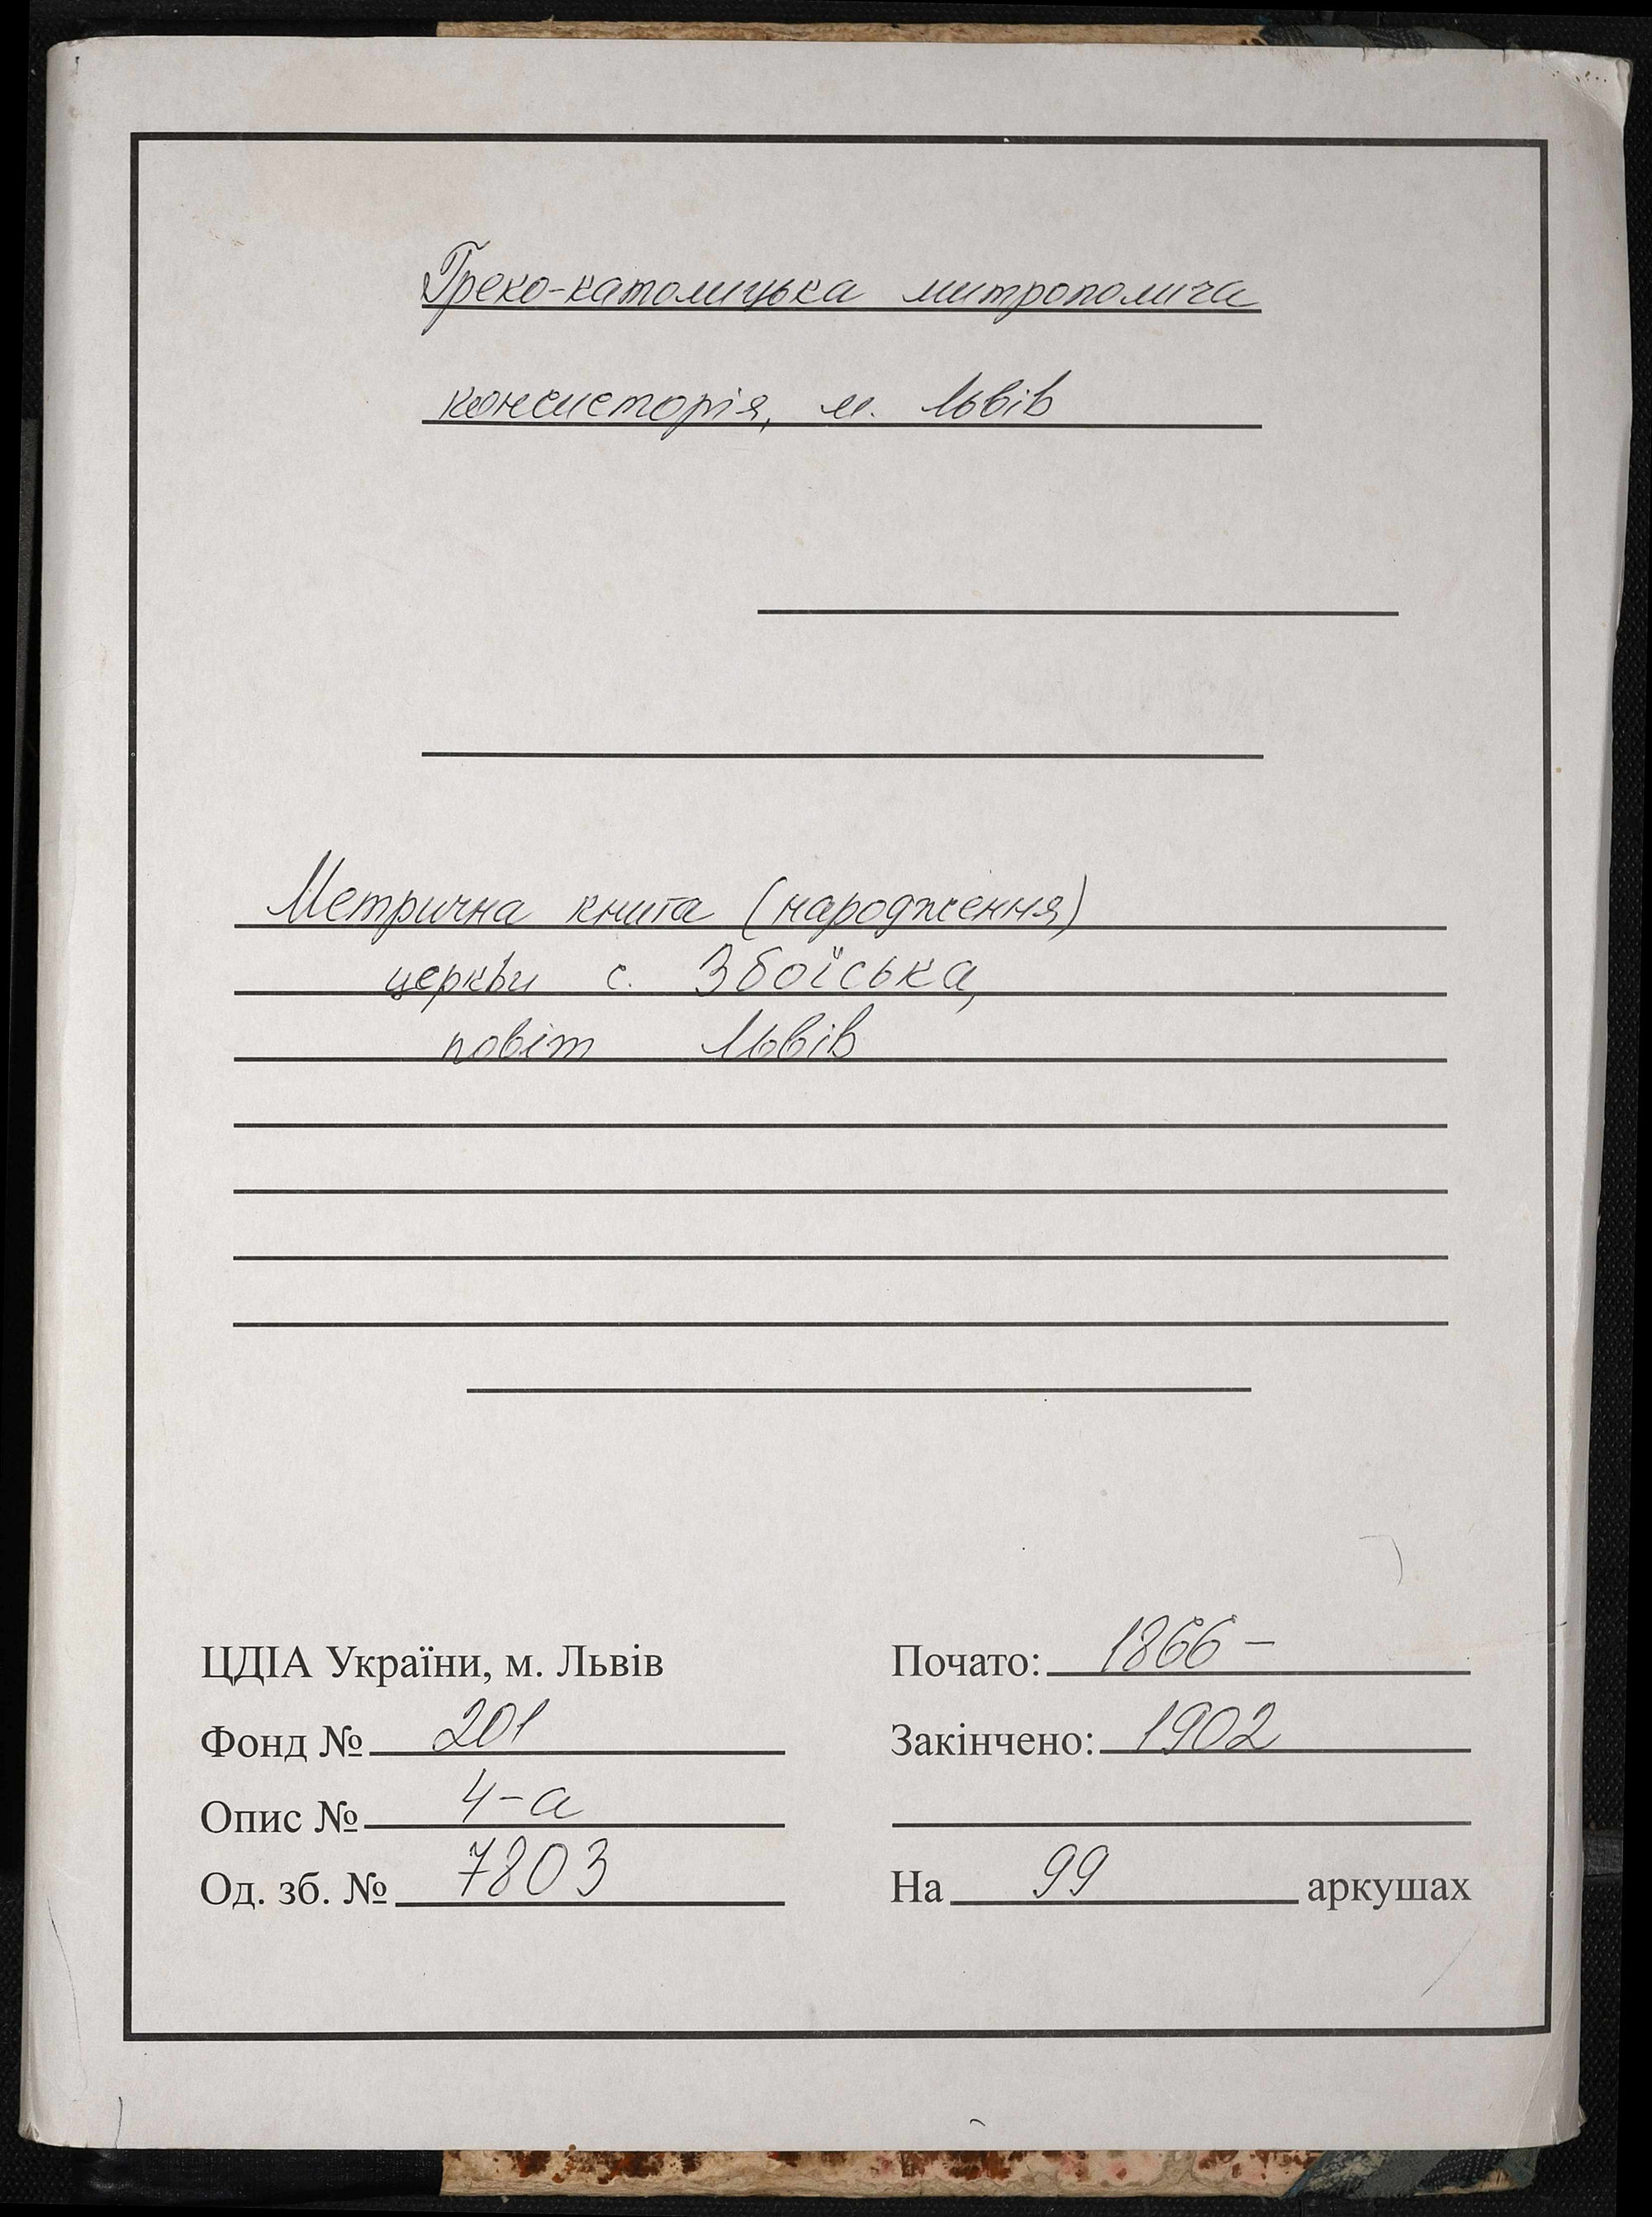 Греко-католицька митрополича
консисторія, м. Львів
Метрична книга (народження)
церкви с. Збоїська,
повіт Львів
ЦДІА України, м. Львів
Фонд № 201
Опис № 4-а
Од. зб. № 7803
Почато: 1866 -
Закінчено: 1902
На 99 аркушах